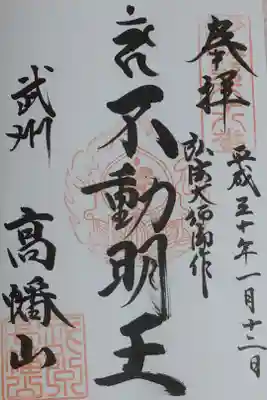 奉拝
平成三十年一月十二日
弘法大師御作
不動明王
武州
高幡山